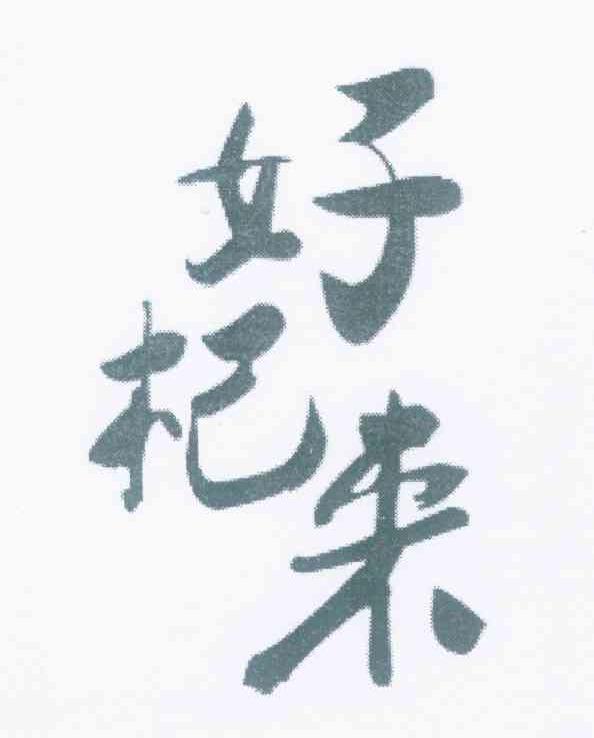 好杞来